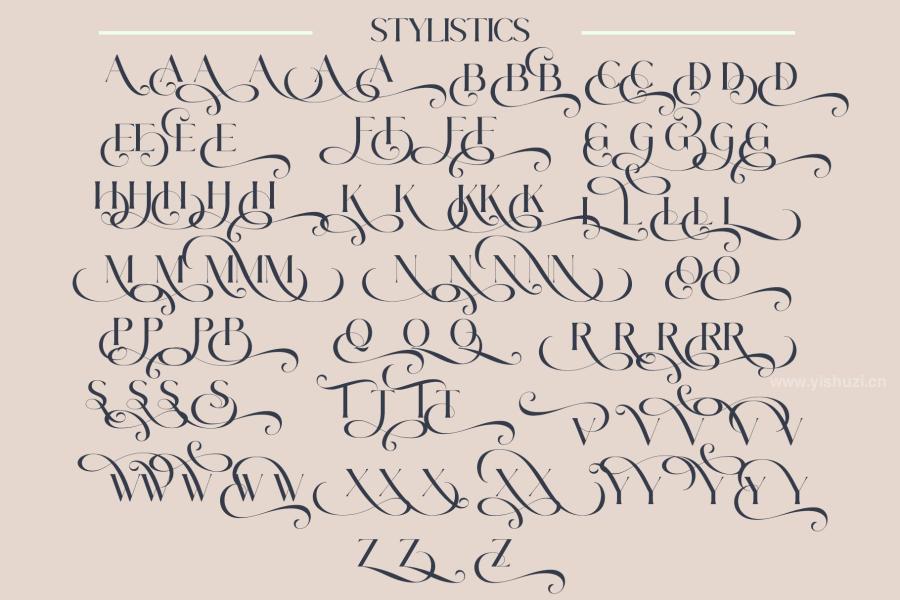 STYLISTICS
A A A A A A B B B C C D D D
E E E E F F F F G G G G G
H H H H H K K K K K L L L L L
M M M M M N N N N N O O
P P P P Q Q Q R R R R R
S S S S T T T T V V V V V
W W W W W X X X X X Y Y Y Y Y
Z Z Z
www.yishuzi.cn